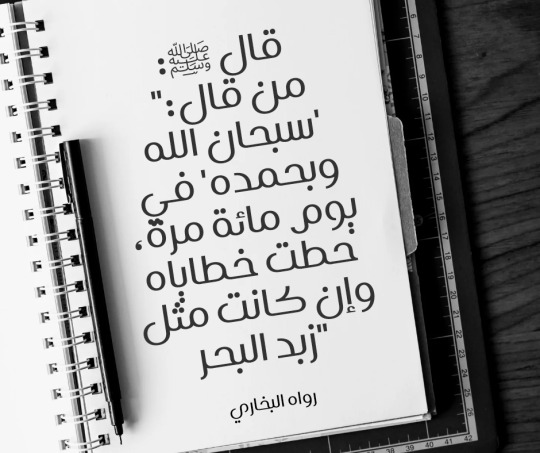 قال ﷺ:
من قال:"
'سبحان الله
وبحمده' في
يوم مائة مرة،
حطت خطاياه
وإن كانت مثل
زبد البحر"
رواه البخاري